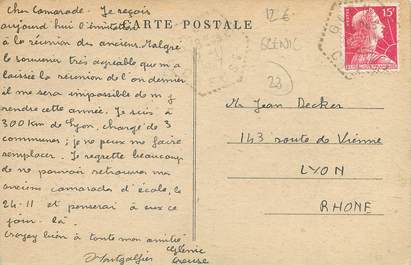 Cher Camarade. Je reçois
aujourd'hui l'invitation
à la réunion des anciens. Malgré
le souvenir très agréable que m'a
laissée la réunion de l'an dernier
il me sera impossible de m'y
rendre cette année. Je suis à
300 km de Lyon, chargé de 3
communes ; je ne peux me faire
remplacer. Je regrette beaucoup
de ne pouvoir retrouver mes
anciens camarades d'école, le
24-11 et penserai à eux ce
jour. là.
Croyez bien à toute mon amitié
Montgolfier
Glénic
Creuse
CARTE POSTALE
12 €
GLENIC
23
15F
Mr Jean Decker
143 route de Vienne
LYON
RHONE